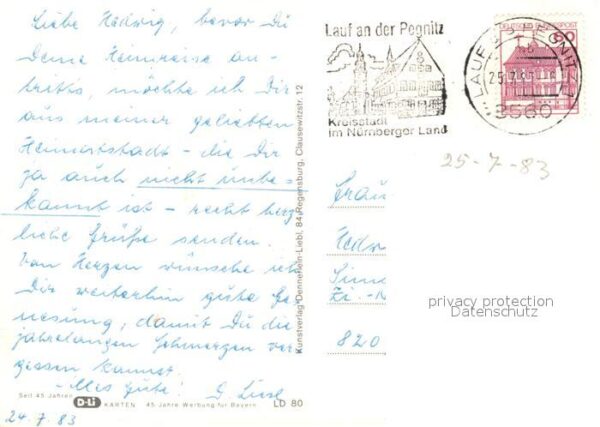 Liebe Hedwig, bevor Du
Deine Heimreise an-
trittst, möchte ich Dir
aus meiner geliebten
Heimatstadt - die Dir
ja auch nicht unbe-
kannt ist - recht herz-
liche Grüße senden.
Von Herzen wünsche ich
Dir weiterhin gute Ge-
nesung, damit Du die
jahrelangen Schmerzen ver-
gessen kannst.
- Alles Gute!
Seit 45 Jahren D-Li KARTEN 45 Jahre Werbung für Bayern LD 80
24.7.83
Kunstverlag Dennerlein-Liebl, 84 Regensburg, Clausewitzstr. 12
Lauf an der Pegnitz
Kreisstadt
im Nürnberger Land
DEUTSCHE BUNDESPOST
LAUF A D PEGNITZ
8560
25-7-83
Frau
Hedw
820
privacy protection
Datenschutz